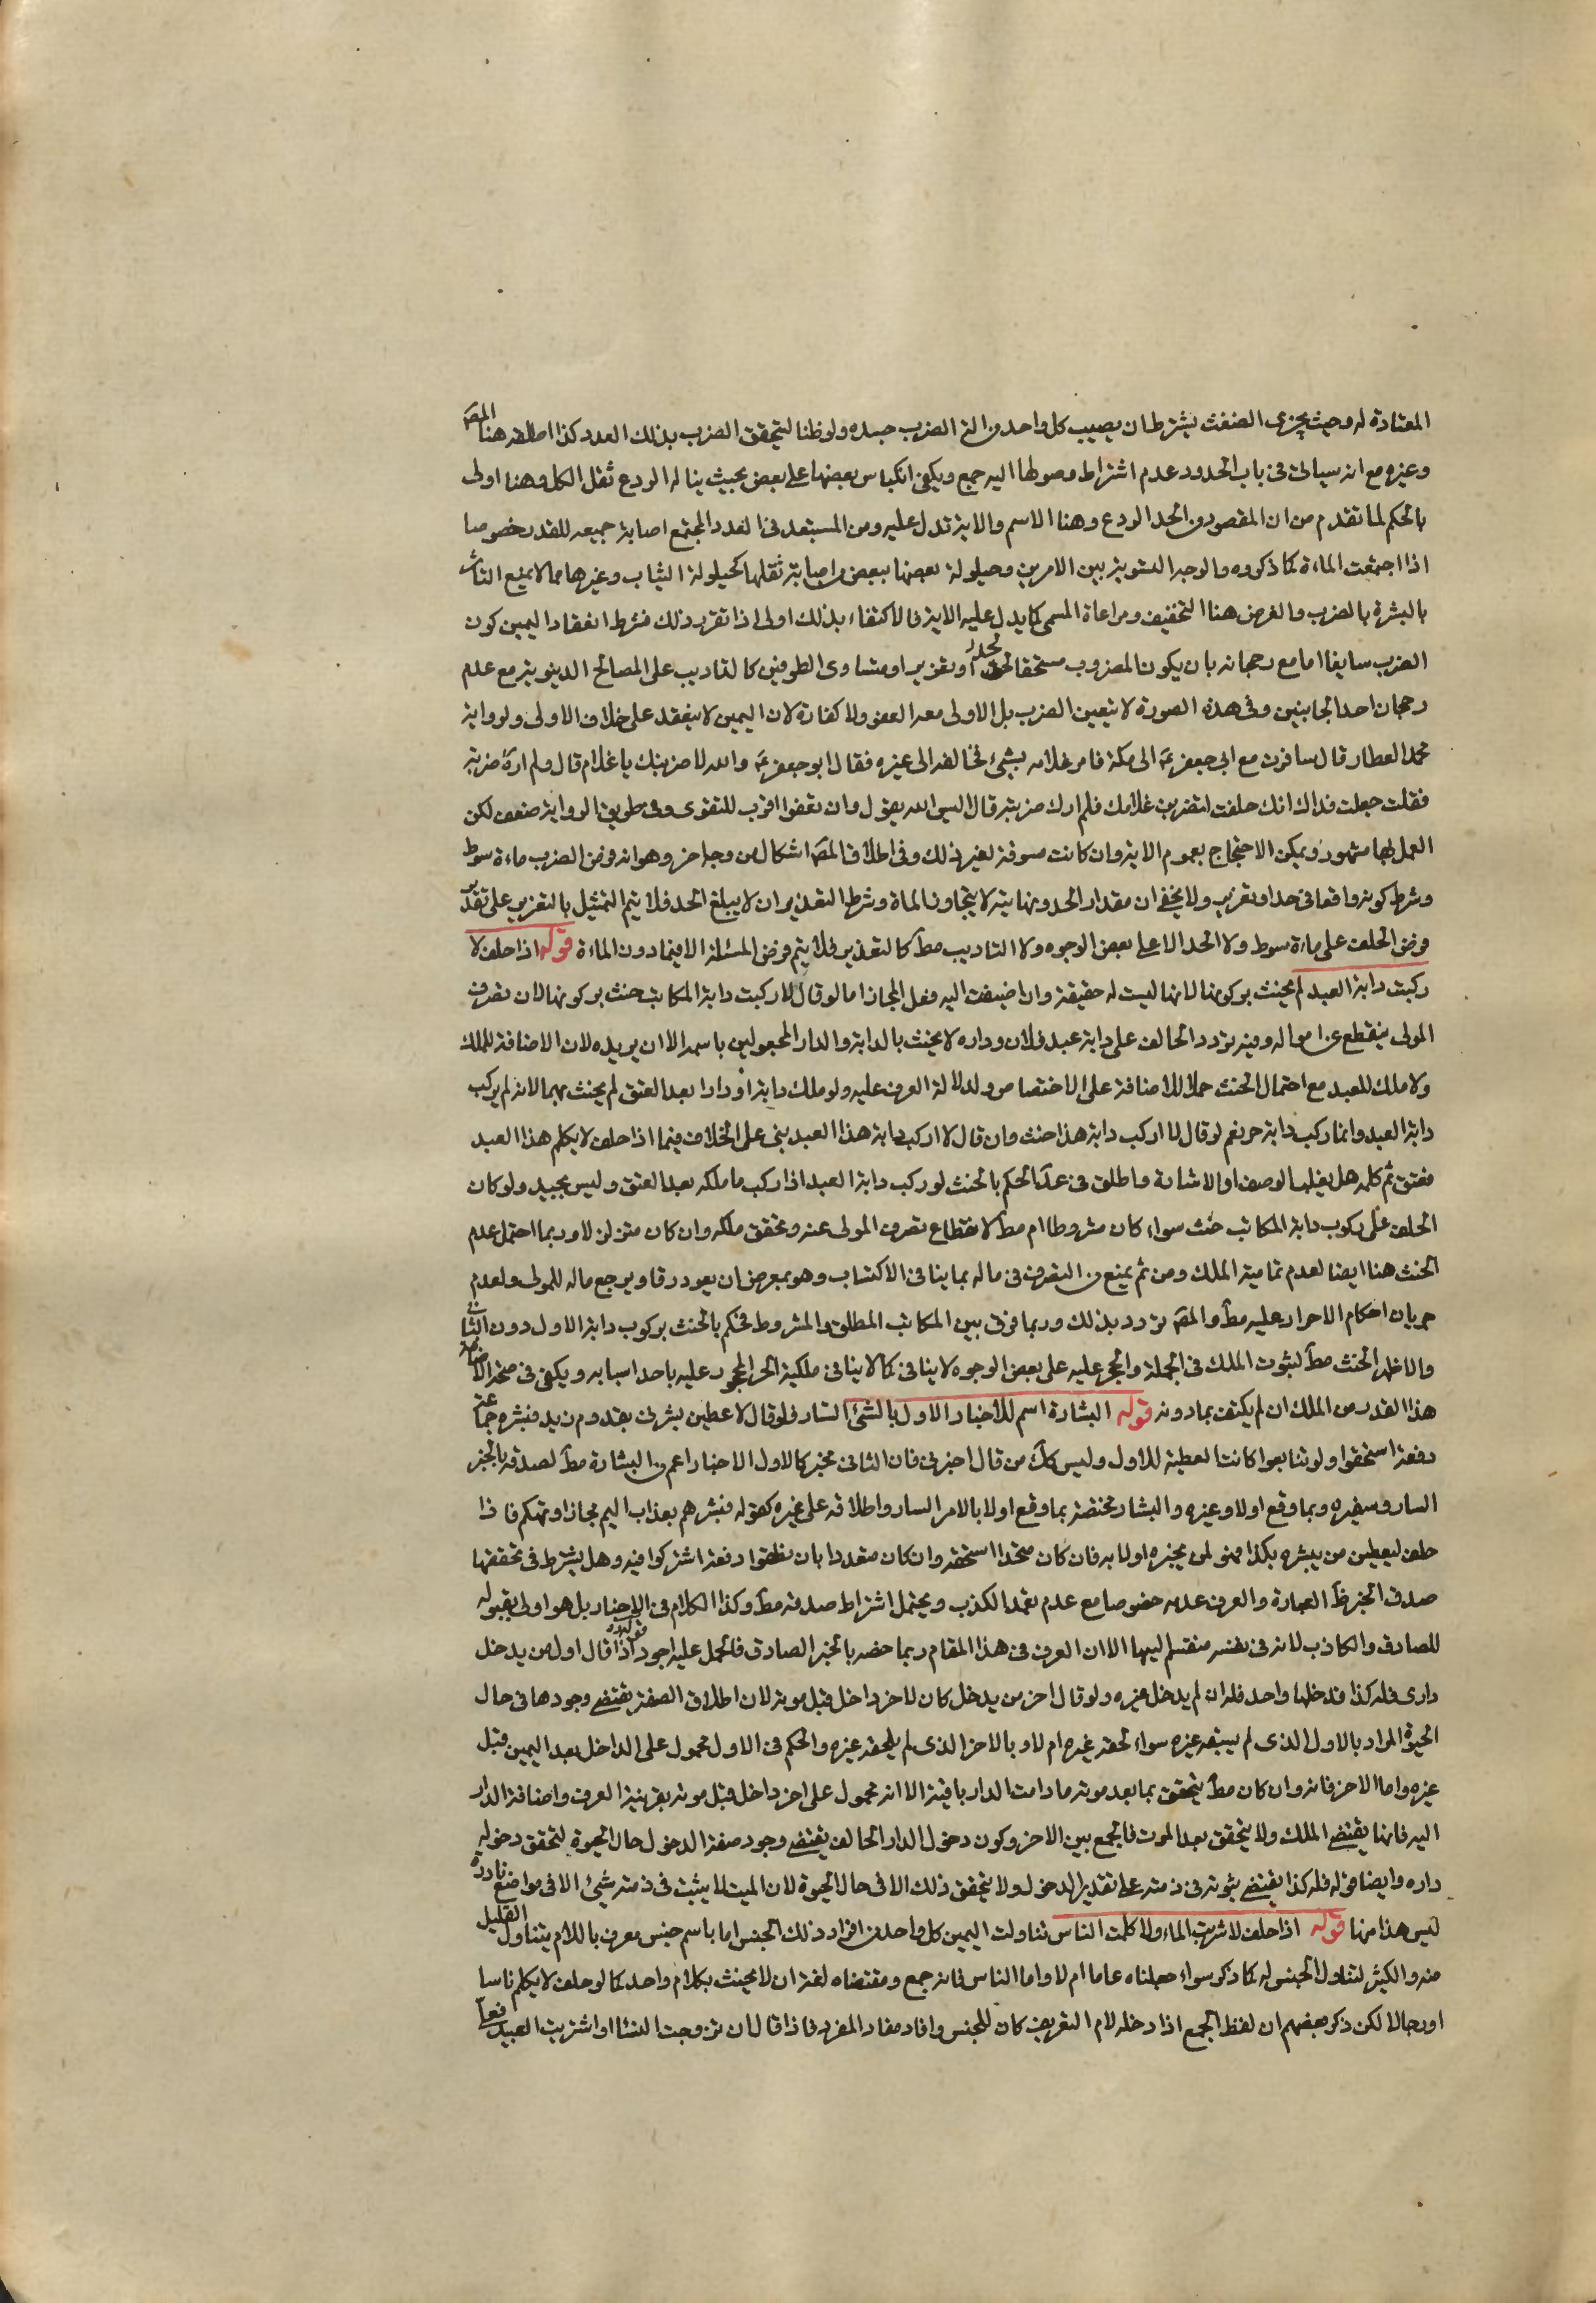 المعتادة له وحيث يجزى الضغث يشترط ان يصيب كل واحد من الة الضرب جسده ولو ظنا ليتحقق الضرب بذلك العدد كذا اطلقه هنا المصَ
وغيره مع انه سياتى فى باب الحدود عدم اشتراط وصولها اليه جمع ويكفى انكباس بعضها على بعض بحيث يناله الردع ثقل الكل وهنا اولى
بالحكم لما تقدم من ان المقصود من الحد الردع وهنا الاسم والاية تدل عليه ومن المستبعد فى العدد المجتمع اصابة جميعه للقدر خصوصا
اذا اجتمعت الماءة كما ذكروه والوجه التسوية بين الامرين وحيلولة بعضها ببعض من اصابة ثقلها كحيلولة الثياب وغيرها مما لا يمنع التاثر
بالبشرة بالضرب والغرض هنا التخفيف ومراعاة المسمى كما يدل عليه الاية فالاكتفاء بذلك اولى اذا تقرر ذلك فشرط انعقاد اليمين كون
الضرب سايغا اما مع رجحانه بان يكون المضروب مستحقا لحد او تعزير او متساوى الطرفين كالتاديب على المصالح الدنيوية مع عدم
رجحان احد الجانبين وفى هذه الصورة لا يتعين الضرب بل الاولى معه العفو ولا كفارة لان اليمين لا ينعقد على خلاف الاولى ولرواية
محمد العطار قال سافرت مع ابى جعفر عَ الى مكة فامر غلامه بشئ فخالفه الى غيره فقال ابو جعفر عَ والله لاضربنك يا غلام قال ولم ارهَ ضربه
فقلت جعلت فداك انك حلفت لتضربن غلامك فلم ارك ضربته قال اليس الله يقول وان تعفوا اقرب للتقوى وفى طريق الرواية ضعف لكن
العمل بها مشهور ويمكن الاحتجاج بعموم الاية وان كانت مسوقة لغير ذلك وفى اطلاق المصَ اشكال من وجه اخر وهو انه فرض الضرب ماءة سوط
وشرط كونه واقعا فى حد او تعزير ولا يخفى ان مقدار الحد ونهايته لا يتجاوز الماة وشرط التعذير ان لا يبلغ الحد فلا يتم التمثيل بالتعزير على تقدير
فرض الحلف على ماءة سوط ولا الحد الا على بعض الوجوه ولا التاديب مطَ كالتعذير فلا يتم فرض المسئلة الا فيما دون الماءة قوله اذا حلف لا
ركبت دابة العبد لم يحنث بركوبها لانها ليست له حقيقة وان اضيفت اليه فعلى المجاز اما لو قال لا ركبت دابة المكاتب حنث بركوبها لان تصرف
المولى ينقطع عن امواله وفيه تردد الحالف على دابة عبد فلان وداره لا يحنث بالدابة والدار المجعولين باسمه الا ان يريده لان الاضافة للملك
ولا ملك للعبد مع احتمال الحنث حملا للاضافة على الاختصاص ولدلالة العرف عليه ولو ملك دابة او دارا بعد العتق لم يحنث بهما لانه لم يركب
دابة العبد وانما ركب دابة حر نعم لو قال لا اركب دابة هذا حنث وان قال لا اركب دابة هذا العبد بنى على الخلاف فيما اذا حلف لا يكلم هذا العبد
فعتق ثم كلمه هل يغلب الوصف او الاشارة واطلق فى عدَ الحكم بالحنث لو ركب دابة العبد اذا ركب ما ملكه بعد العتق وليس بجيد ولو كان
الحلف على ركوب دابة المكاتب حنث سواء كان مشروطا ام مطَ لانقطاع تصرف المولى عنه وتحقق ملكه وان كان متزلزلا وربما احتمل عدم
الحنث هنا ايضا لعدم تمامية الملك ومن ثم يمنع من التصرف فى ماله بما ينافى الاكتساب وهو بمعرض ان يعود رقا ويرجع ماله للمولى ولعدم
جريان احكام الاحرار عليه مطَ والمصَ تردد بذلك وربما فرق بين المكاتب المطلق والمشروط فحكم بالحنث بركوب دابة الاول دون الثانى
والاظهر الحنث مطَ لثبوت الملك فى الجملة والحجر عليه على بعض الوجوه لا ينافى كما لا ينافى ملكية الحر المحجور عليه باحد اسبابه ويكفى فى صحة الاضافة
هذا القدر من الملك ان لم يكتف بما دونه قوله البشارة اسم للاخبار الاول بالشئ السار فلو قال لاعطين بشرنى بقدوم زيد فبشره جماعة
دفعة استحقوا ولو تتابعوا كانت العطية للاول وليس كذلَك من قال اخبرنى فان الثانى مخبر كالاول الاخبار اعم من البشارة مطَ لصدقه بالخبر
السار وبغيره وبما وقع اولا وغيره والبشارة مختصة بما وقع اولا بالامر السار واطلاقه على غيره كقوله فبشرهم بعذاب اليم مجاز او تهكم فاذا
حلف ليعطين من يبشره بكذا فهو لمن يخبره اولا به فان كان متحدا استحقه وان كان متعددا بان نطقوا دفعة اشتركوا فيه وهل يشترط فى تحققها
صدق الخبر ظَ العبارة والعرف عدمه خصوصا مع عدم تعمد الكذب ويحتمل اشتراط صدقه مطَ وكذا الكلام فى الاخبار بل هو اولى بقبوله
للصادق والكاذب لانه فى نفسه منقسم اليهما الا ان العرف فى هذا المقام ربما خصه بالخبر الصادق فالحمل عليه اجود قوله اذا قال اول من يدخل
دارى فله كذا فدخلها واحد فله ان لم يدخل غيره ولو قال اخر من يدخل كان لاخر داخل قبل موته لان اطلاق الصفة يقتضى وجودها فى حال
الحيوة المراد بالاول الذى لم يسبقه غيره سواء لحقه غيره ام لا وبالاخر الذى لم يلحقه غيره والحكم فى الاول محمول على الداخل بعد اليمين قبل
غيره واما الاخر فانه وان كان مطَ يتحقق بما بعد موته ما دامت الدار باقية الا انه محمول على اخر داخل قبل موته بقرينة العرف واضافة الدار
اليه فانها يقتضى الملك ولا يتحقق بعد الموت فالجمع بين الاخر وكون دخول الدار الحالف يقتضى وجود صفة الدخول حال الحيوة لتحقق دخوله
داره وايضا قوله فله كذا يقتضى ثبوته فى ذمته على تقدير الدخول ولا يتحقق ذلك الا فى حال الحيوة لان الميت لا يثبت فى ذمته شئ الا فى مواضع نادرة
ليس هذا منها قوله اذا حلف لا شربت الماء ولا كلمت الناس تناولت اليمين كل واحد من افراد ذلك الجنس اما باسم جنس معرف باللام يتناول القليل
منه والكثير لتناول الجنس له كما ذكر سواء جعلناه عاما ام لا واما الناس فانه جمع ومقتضاه لغة ان لا يحنث بكلام واحد كما لو حلف لا يكلم ناسا
او رجالا لكن ذكر بعضهم ان لفظ الجمع اذا دخله لام التعريف كان للجنس وافاد مفاد المفرد فاذا قال ان تزوجت النساء او اشتريت العبيد فعلى